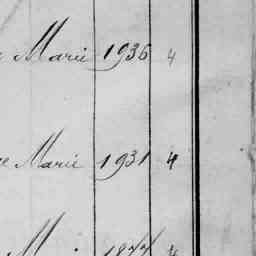 e Marie 1936 4
e Marie 1931 4
1877 4